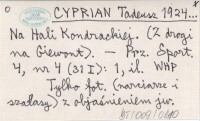 CYPRIAN Tadeusz 1924...
Na Hali Kondrackiej. (Z drogi
na Giewont). — Prz. Sport.
4, nr 4 (31 I): 1, il. WHP
Tylko fot. (narciarze i
szałasy) z objaśnieniem jw.